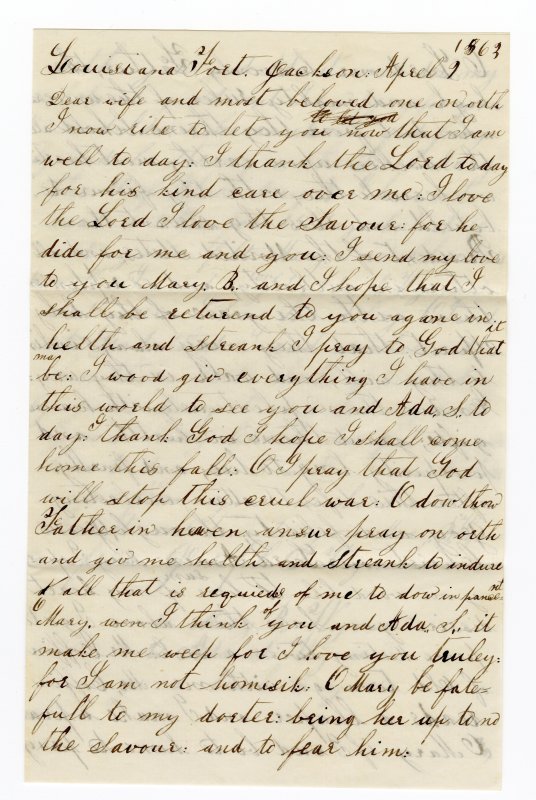 1863
Louisiana Fort. Jackson: Aprel 9
Dear wife and most beloved one on orth
I now rite to let you now that I am
well to day: I thank the Lord to day
for his kind care over me: I love
the Lord I love the Savour: for he
dide for me and you: I send my love
to you Mary. B. and I hope that I
shall be returend to you agane in
helth and streank I pray to God that it
may be: I wood giv everything I have in
this world to see you and Ada. S. to
day: I thank God I hope I shall come
home this fall: O I pray that God
will stop this cruel war: O dow thow
Father in heven ansur pray on orth
and giv me helth and streank to indure
all that is requied of me to dow in
O Mary. wen I think of you and Ada. S. it
make me weep for I love you truley:
for I am not homisik. O Mary be fate=
full to my dorter: bring her up to no
the Savour: and to fear him: